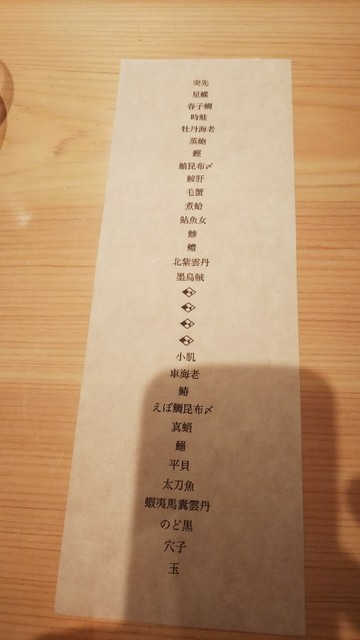 突先
星鰈
春子鯛
時鮭
牡丹海老
蒸鮑
鰹
鯖昆布〆
鮟肝
毛蟹
煮蛤
鮎魚女
鯵
鱧
北紫雲丹
墨烏賊
小肌
車海老
鰆
えぼ鯛昆布〆
真蛸
鰯
平貝
太刀魚
蝦夷馬糞雲丹
のど黒
穴子
玉